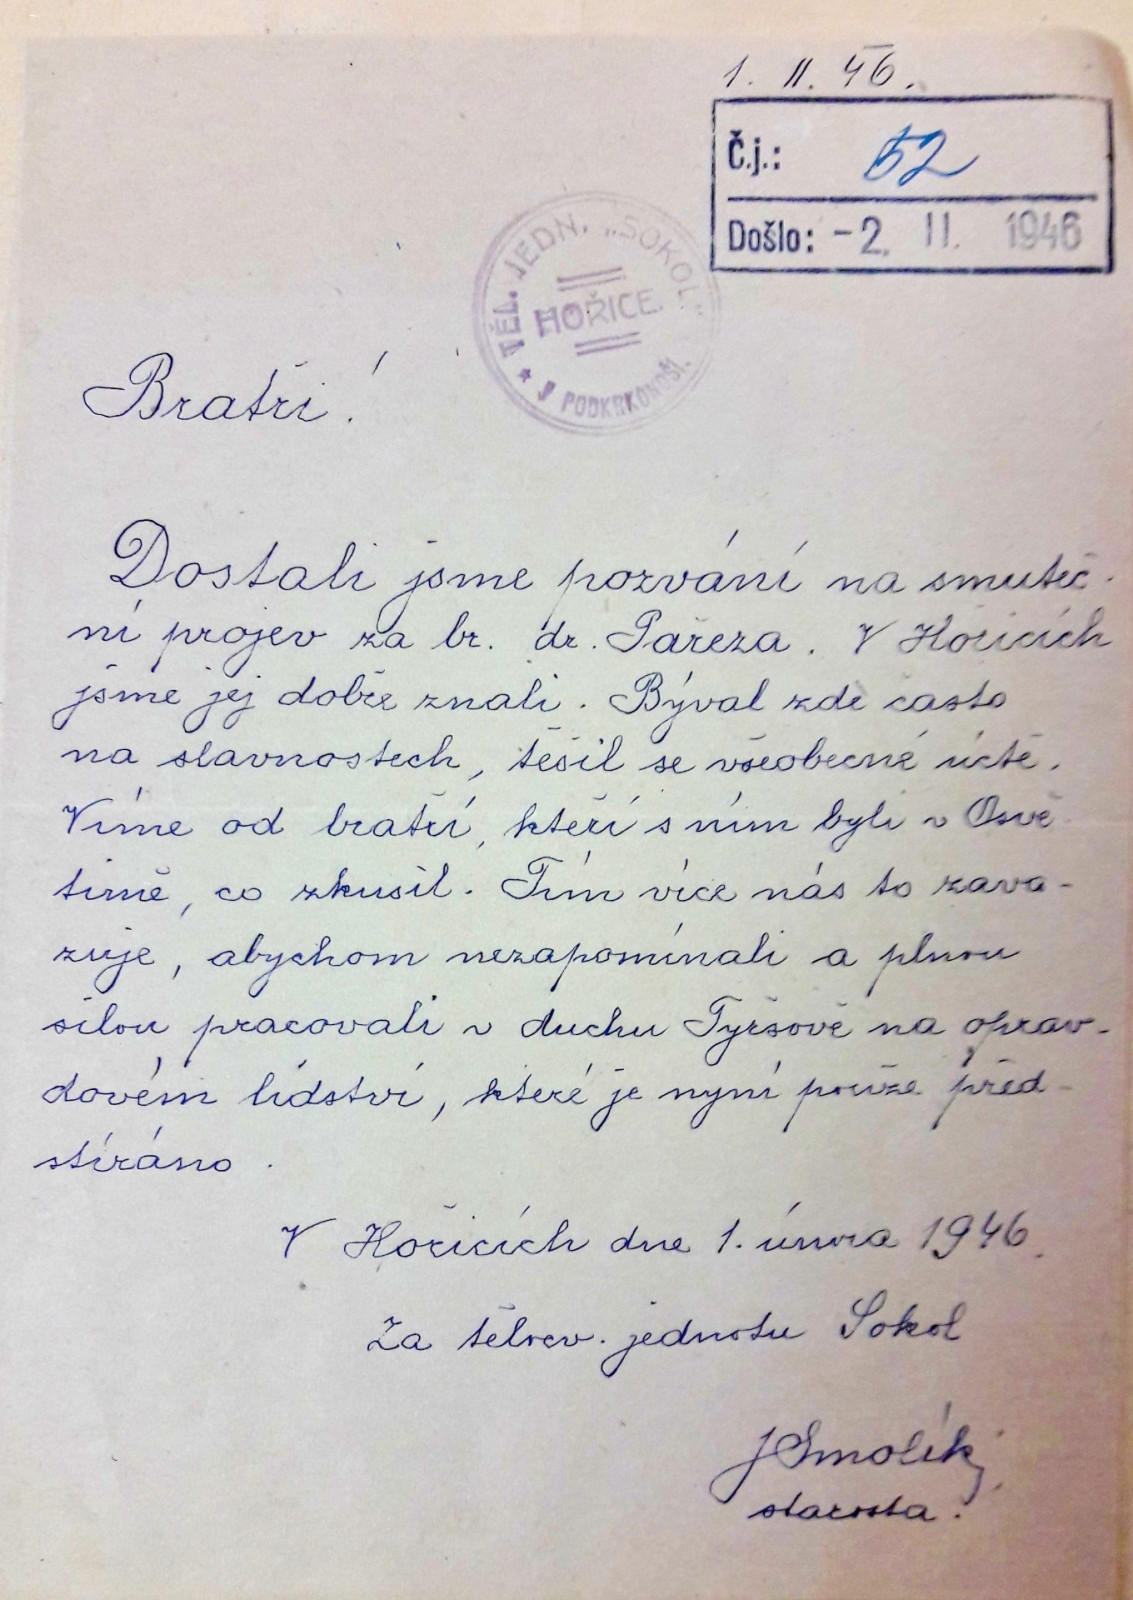 1. II. 46.
Č.j.: 52
Došlo: -2. II. 1946
TĚL. JEDN. „SOKOL"
HOŘICE.
PODKRKONOŠÍ.
Bratři!
Dostali jsme pozvání na smuteč-
ní projev za br. dr. Pařeza. V Hořicích
jsme jej dobře znali. Býval zde často
na slavnostech, těšil se všeobecné úctě.
Víme od bratří, kteří s ním byli v Osvě-
timě, co zkusil. Tím více nás to zava-
zuje, abychom nezapomínali a plnou
silou pracovali v duchu Tyršově na oprav-
dovém lidství, které je nyní pouze před-
stíráno.
V Hořicích dne 1. února 1946.
Za tělocv. jednotu Sokol
J Smolík
starosta.